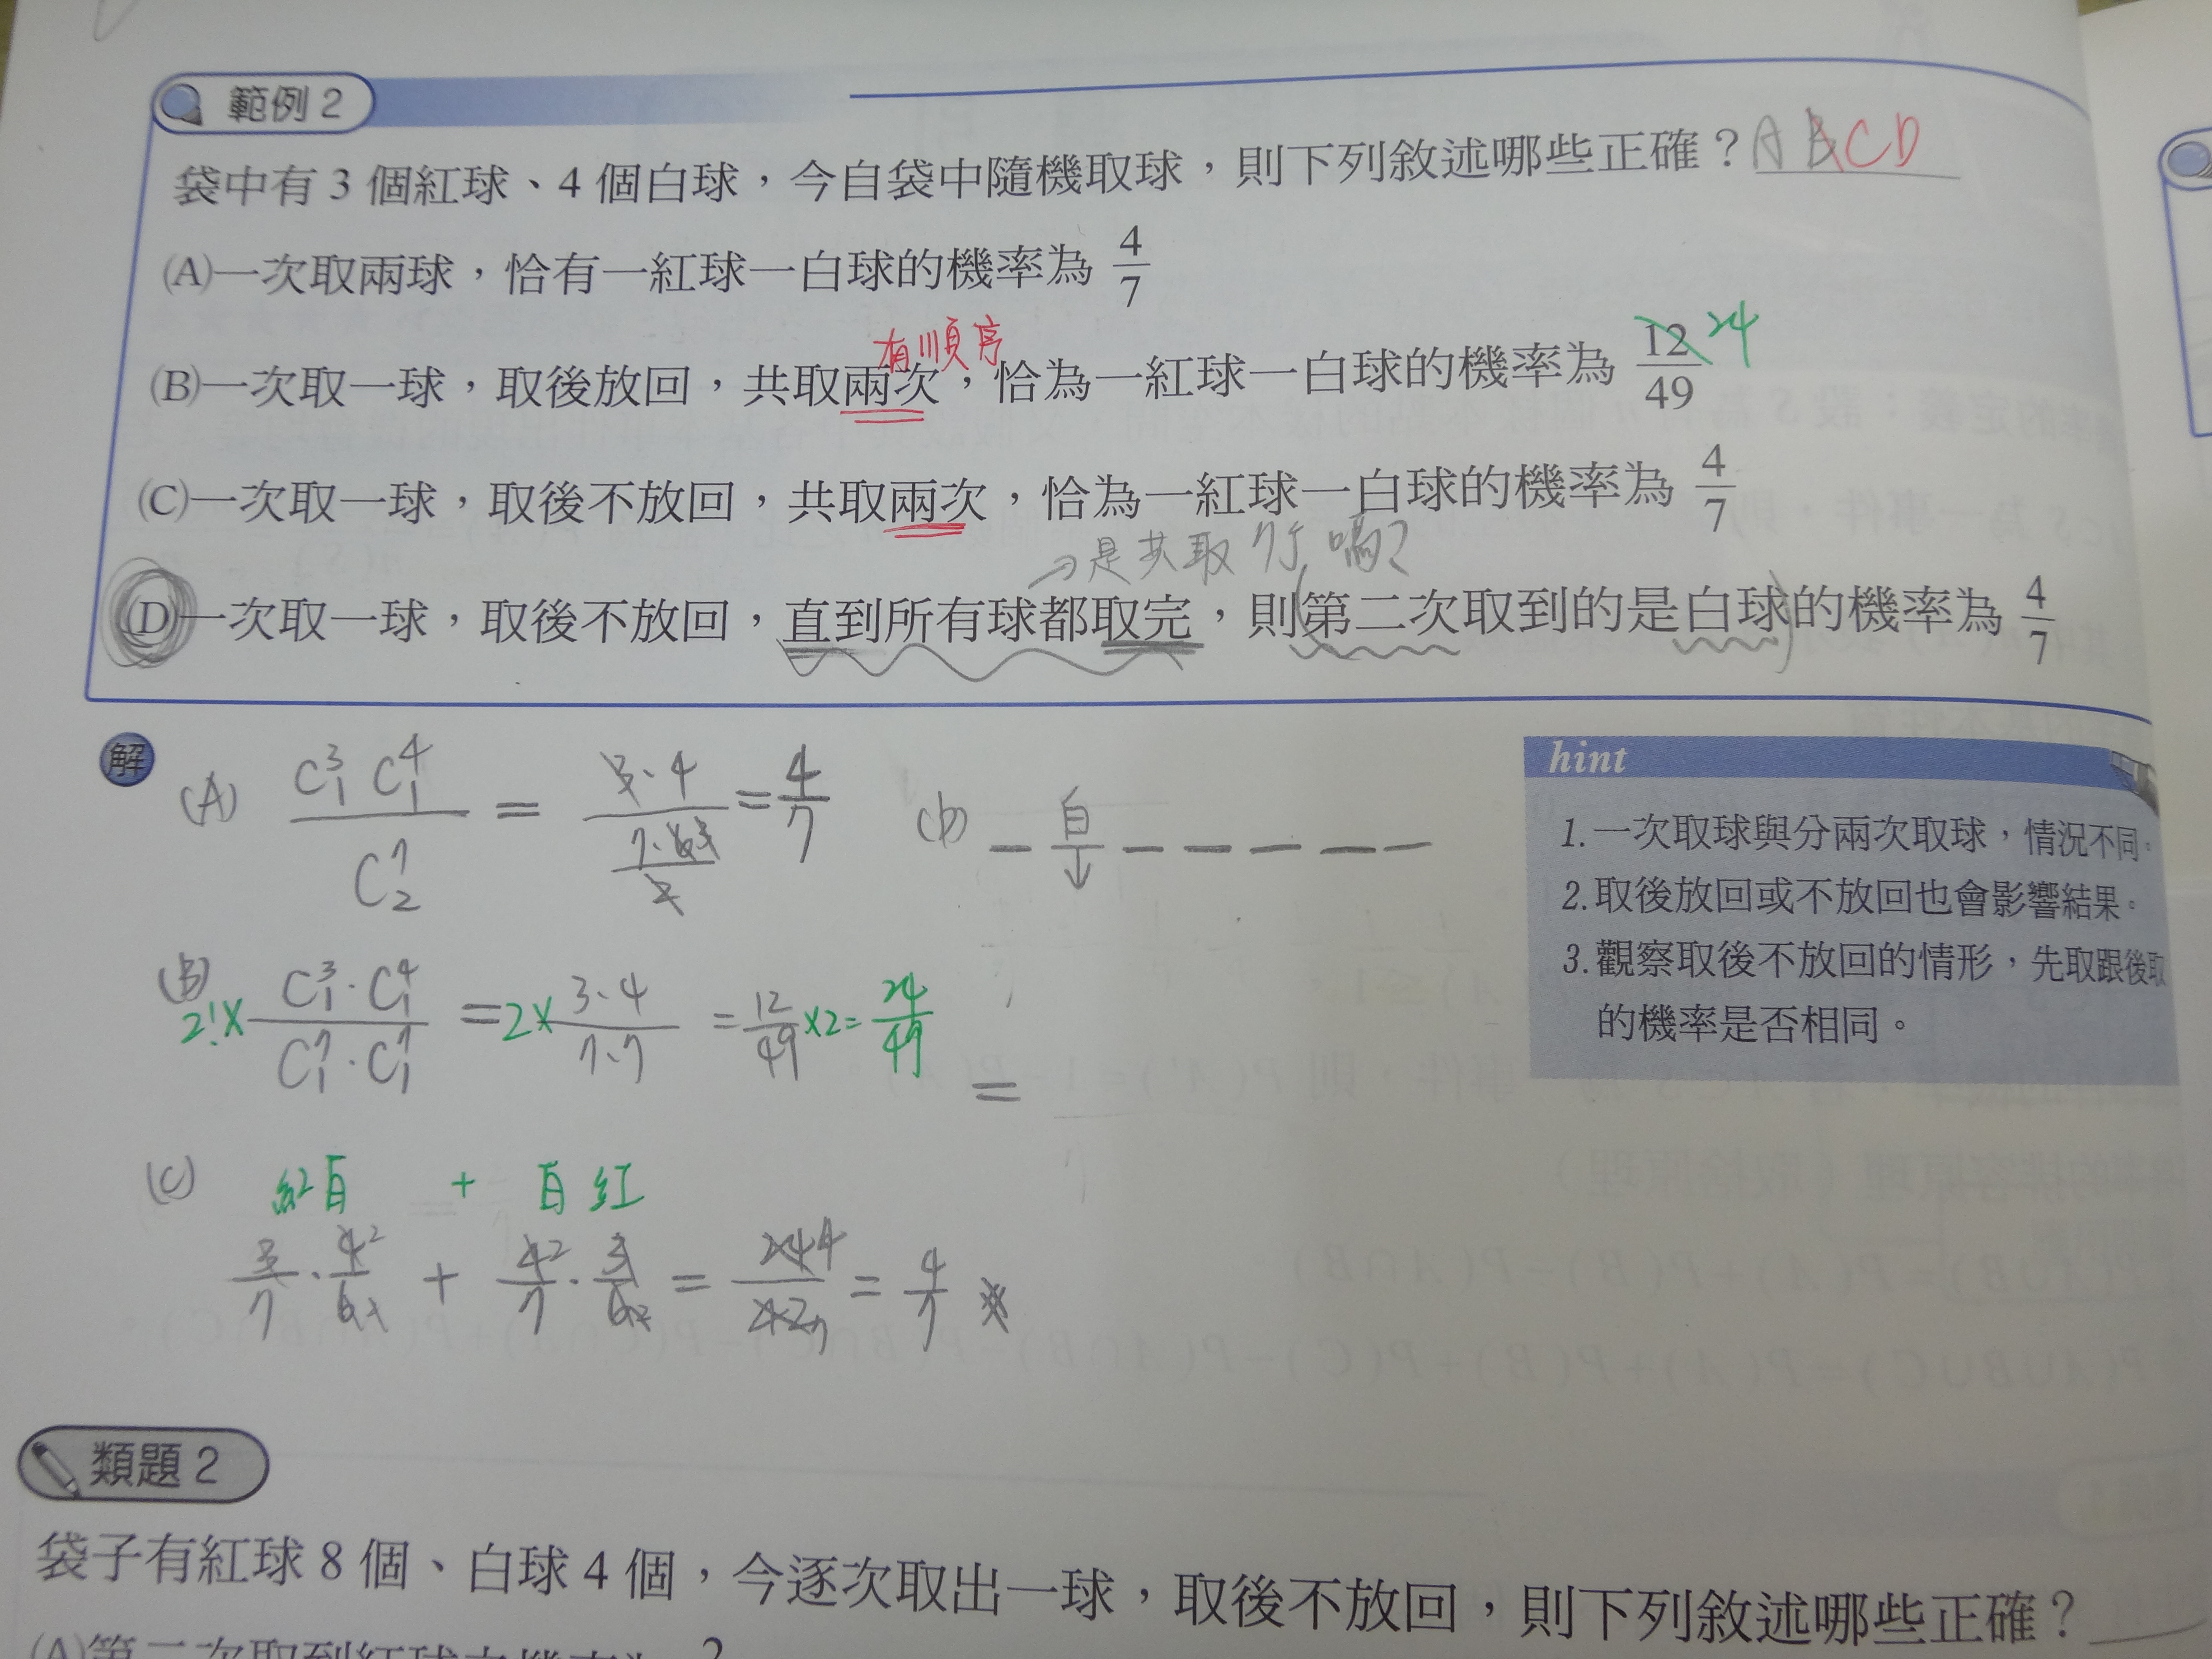 範例 2
袋中有 3 個紅球、4 個白球，今自袋中隨機取球，則下列敘述哪些正確？A B CD
(A)一次取兩球，恰有一紅球一白球的機率為 4/7
有順序
(B)一次取一球，取後放回，共取兩次，恰為一紅球一白球的機率為 12/49 24
(C)一次取一球，取後不放回，共取兩次，恰為一紅球一白球的機率為 4/7
→是共取7次嗎？
(D)一次取一球，取後不放回，直到所有球都取完，則(第二次取到的是白球)的機率為 4/7
解
(A) C³₁ C⁴₁ / C⁷₂ = 3·4 / (7·6/2) = 4/7
(D) _ 白 _ _ _ _ _
↓
(B) 2!× C³₁·C⁴₁ / C⁷₁·C⁷₁ = 2× 3·4 / 7·7 = 12/49 ×2= 24/49
=
(C) 紅白 + 白紅
3/7 · 4/6 + 4/7 · 3/6 = 24/42 = 4/7
hint
1.一次取球與分兩次取球，情況不同。
2.取後放回或不放回也會影響結果。
3.觀察取後不放回的情形，先取跟後取
的機率是否相同。
類題 2
袋子有紅球 8 個、白球 4 個，今逐次取出一球，取後不放回，則下列敘述哪些正確？
(A)第二次取到紅球之機率為 2